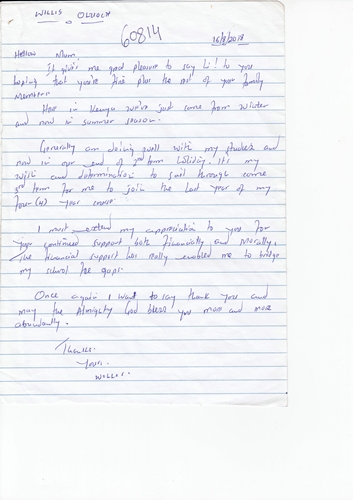 WILLIS OLUOCH
60814
16/8/2018
Hellow Mum.
It gives me good pleasure to say Hi! to you
hoping that you're fine plus the rest of your family
members.
Here in Kenya we've just come from winter
and now in summer season.
Generally am doing well with my studies and
now in our end of 2nd term holiday. It's my
wish and determination to sail through come
3rd term for me to join the last year of my
four (4) year course.
I must extend my appreciation to you for
your continued support both financially and morally.
The financial support has really enabled me to bridge
my school fee gaps.
Once again I want to say thank you and
may the Almighty God bless you more and more
abundantly.
Thanks.
Yours.
WILLIS.